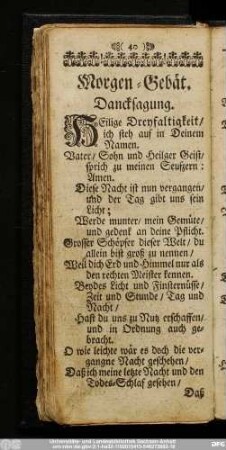 ( 40 )
Morgen-Gebät.
Dancksagung.
HEilige Dreyfaltigkeit/
ich steh auf in Deinem
Namen.
Vater/ Sohn und Heilger Geist/
sprich zu meinen Seufzern:
Amen.
Diese Nacht ist nun vergangen/
und der Tag gibt uns sein
Licht;
Werde munter/ mein Gemüte/
und gedenk an deine Pflicht.
Grosser Schöpfer dieser Welt/ du
allein bist groß zu nennen/
Weil dich Erd und Himmel nur als
den rechten Meister kennen.
Beydes Licht und Finsternüsse/
Zeit und Stunde/ Tag und
Nacht/
Hast du uns zu Nutz erschaffen/
und in Ordnung auch ge-
bracht.
O wie leichte wär es doch die ver-
gangne Nacht geschehen/
Daß ich meine letzte Nacht und den
Todes-Schlaf gesehen/
Daß
Universitäts- und Landesbibliothek Sachsen-Anhalt